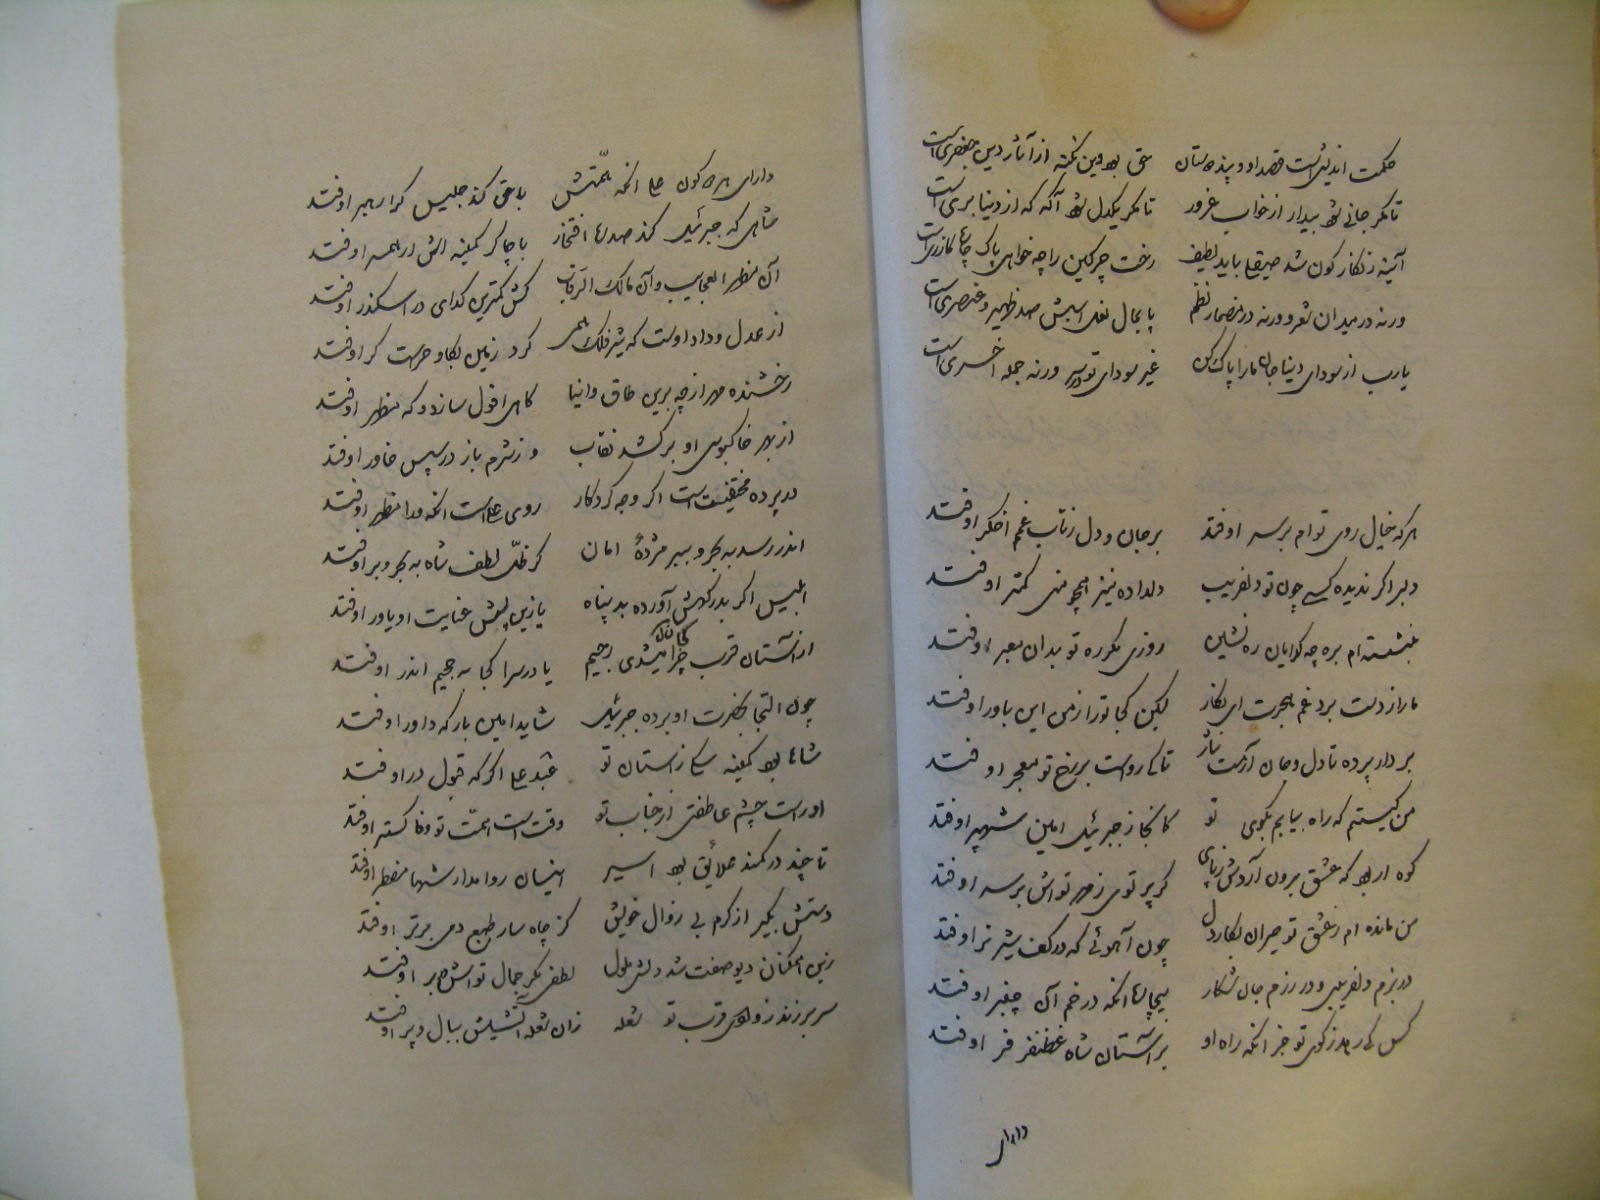 حکمت اندیشی است قصد او و پند دوستان حتی بود وین نکته از آثار دین جعفری است
تا مگر جانی شود بیدار از خواب غرور تا مگر یکدل شود آگه که از دنیا بری است
آینه زنگار کون شد صیقلی باید لطیف رخت چرکین را چه خواهی پاک جای گازری است
ورنه در میدان شعر و ورنه در مضمار نظم پایمال نعل اسبش صد ظهیر و عنصری است
یارب از سودای دنیا جان ما را پاک کن غیر سودای تو در سر ورنه جمله اخسری است
هر که خیال روی توام بر سر اوفتد بر جان و دل ز تاب غمم اخگر اوفتد
دلبر اگر ندیده کسی چون تو دلفریب دلداده نیز همچو منی کمتر اوفتد
بنشسته ام بره چه گدایان ره نشین روزی مگر ره تو بدان معبر اوفتد
ما را ز دست برد غم هجرت ای نگار لیکن کجا تو را ز من این باور اوفتد
بردار پرده تا دل و جان آرمت نثار تا کی رواست بر رخ تو معجر اوفتد
من کیستم که راه بیابم بکوی تو کانجا ز جبرئیل امین شهپر اوفتد
کوه ار بود که عشق برون آردش ز پای گر پرتوی ز مهر تواش بر سر اوفتد
من مانده ام ز عشق تو حیران بکار دل چون آهوئی که در کف شیر نر اوفتد
در بزم دلفریبی و در رزم جان شکار بیچاره آنکه در خم آن چنبر اوفتد
کس کی رهد ز کوی تو جز آنکه راه او بر آستان شاه غضنفر فر اوفتد
دارای
دارای هر دو کون علی آنکه همتش باحق کند جلیس کرا رهبر اوفتد
شاهی که جبرئیل کند صد ره افتخار با چاکر کمینه اش ار همسر اوفتد
آن مظهر العجایب و آن مالک الرقاب کش کمترین گدای در اسکندر اوفتد
از عدل و داد اوست که شیر فلک همی گرد زمین بگاو حرست گر اوفتد
رخشنده مهر از چه برین طاق دانیا گاهی افول سازد و گه مظهر اوفتد
از بهر خاکبوسی او برکشد نقاب وز شرم باز در سپس خاور اوفتد
در پرده مختفیست اگر وجه کردگار روی علی است آنکه ورا مظهر اوفتد
اندر رسد به بحر و ببر مژدهٔ امان گر ظل لطف شاه به بحر و بر اوفتد
ابلیس اگر بدرگهش آورده بد پناه یا زین پسش عنایت او یاور اوفتد
از آستان قرب کجا میشدی رجیم یا در سرا کجا به جحیم اندر اوفتد
چون التجا بحضرت او برده جبرئیل شاید امین بارگه داور اوفتد
شاها بود کمینه سگی ز آستان تو عبد علی اگر که قبول در اوفتد
او راست چشم عاطفتی از جناب تو وقت است همت تو وفا گستر اوفتد
تا چند در کمند علائق بود اسیر اینسان روا مدار شها مضطر اوفتد
دستش بگیر از کرم بی زوال خویش کز چاه سار طبع دمی برتر اوفتد
زین همگنان دیو صفت شد دلش ملول لطفی مگر جمال تواش در بر اوفتد
سر بر زند ز وادی قرب تو شعله زان شعله آتشیش ببال و پر اوفتد